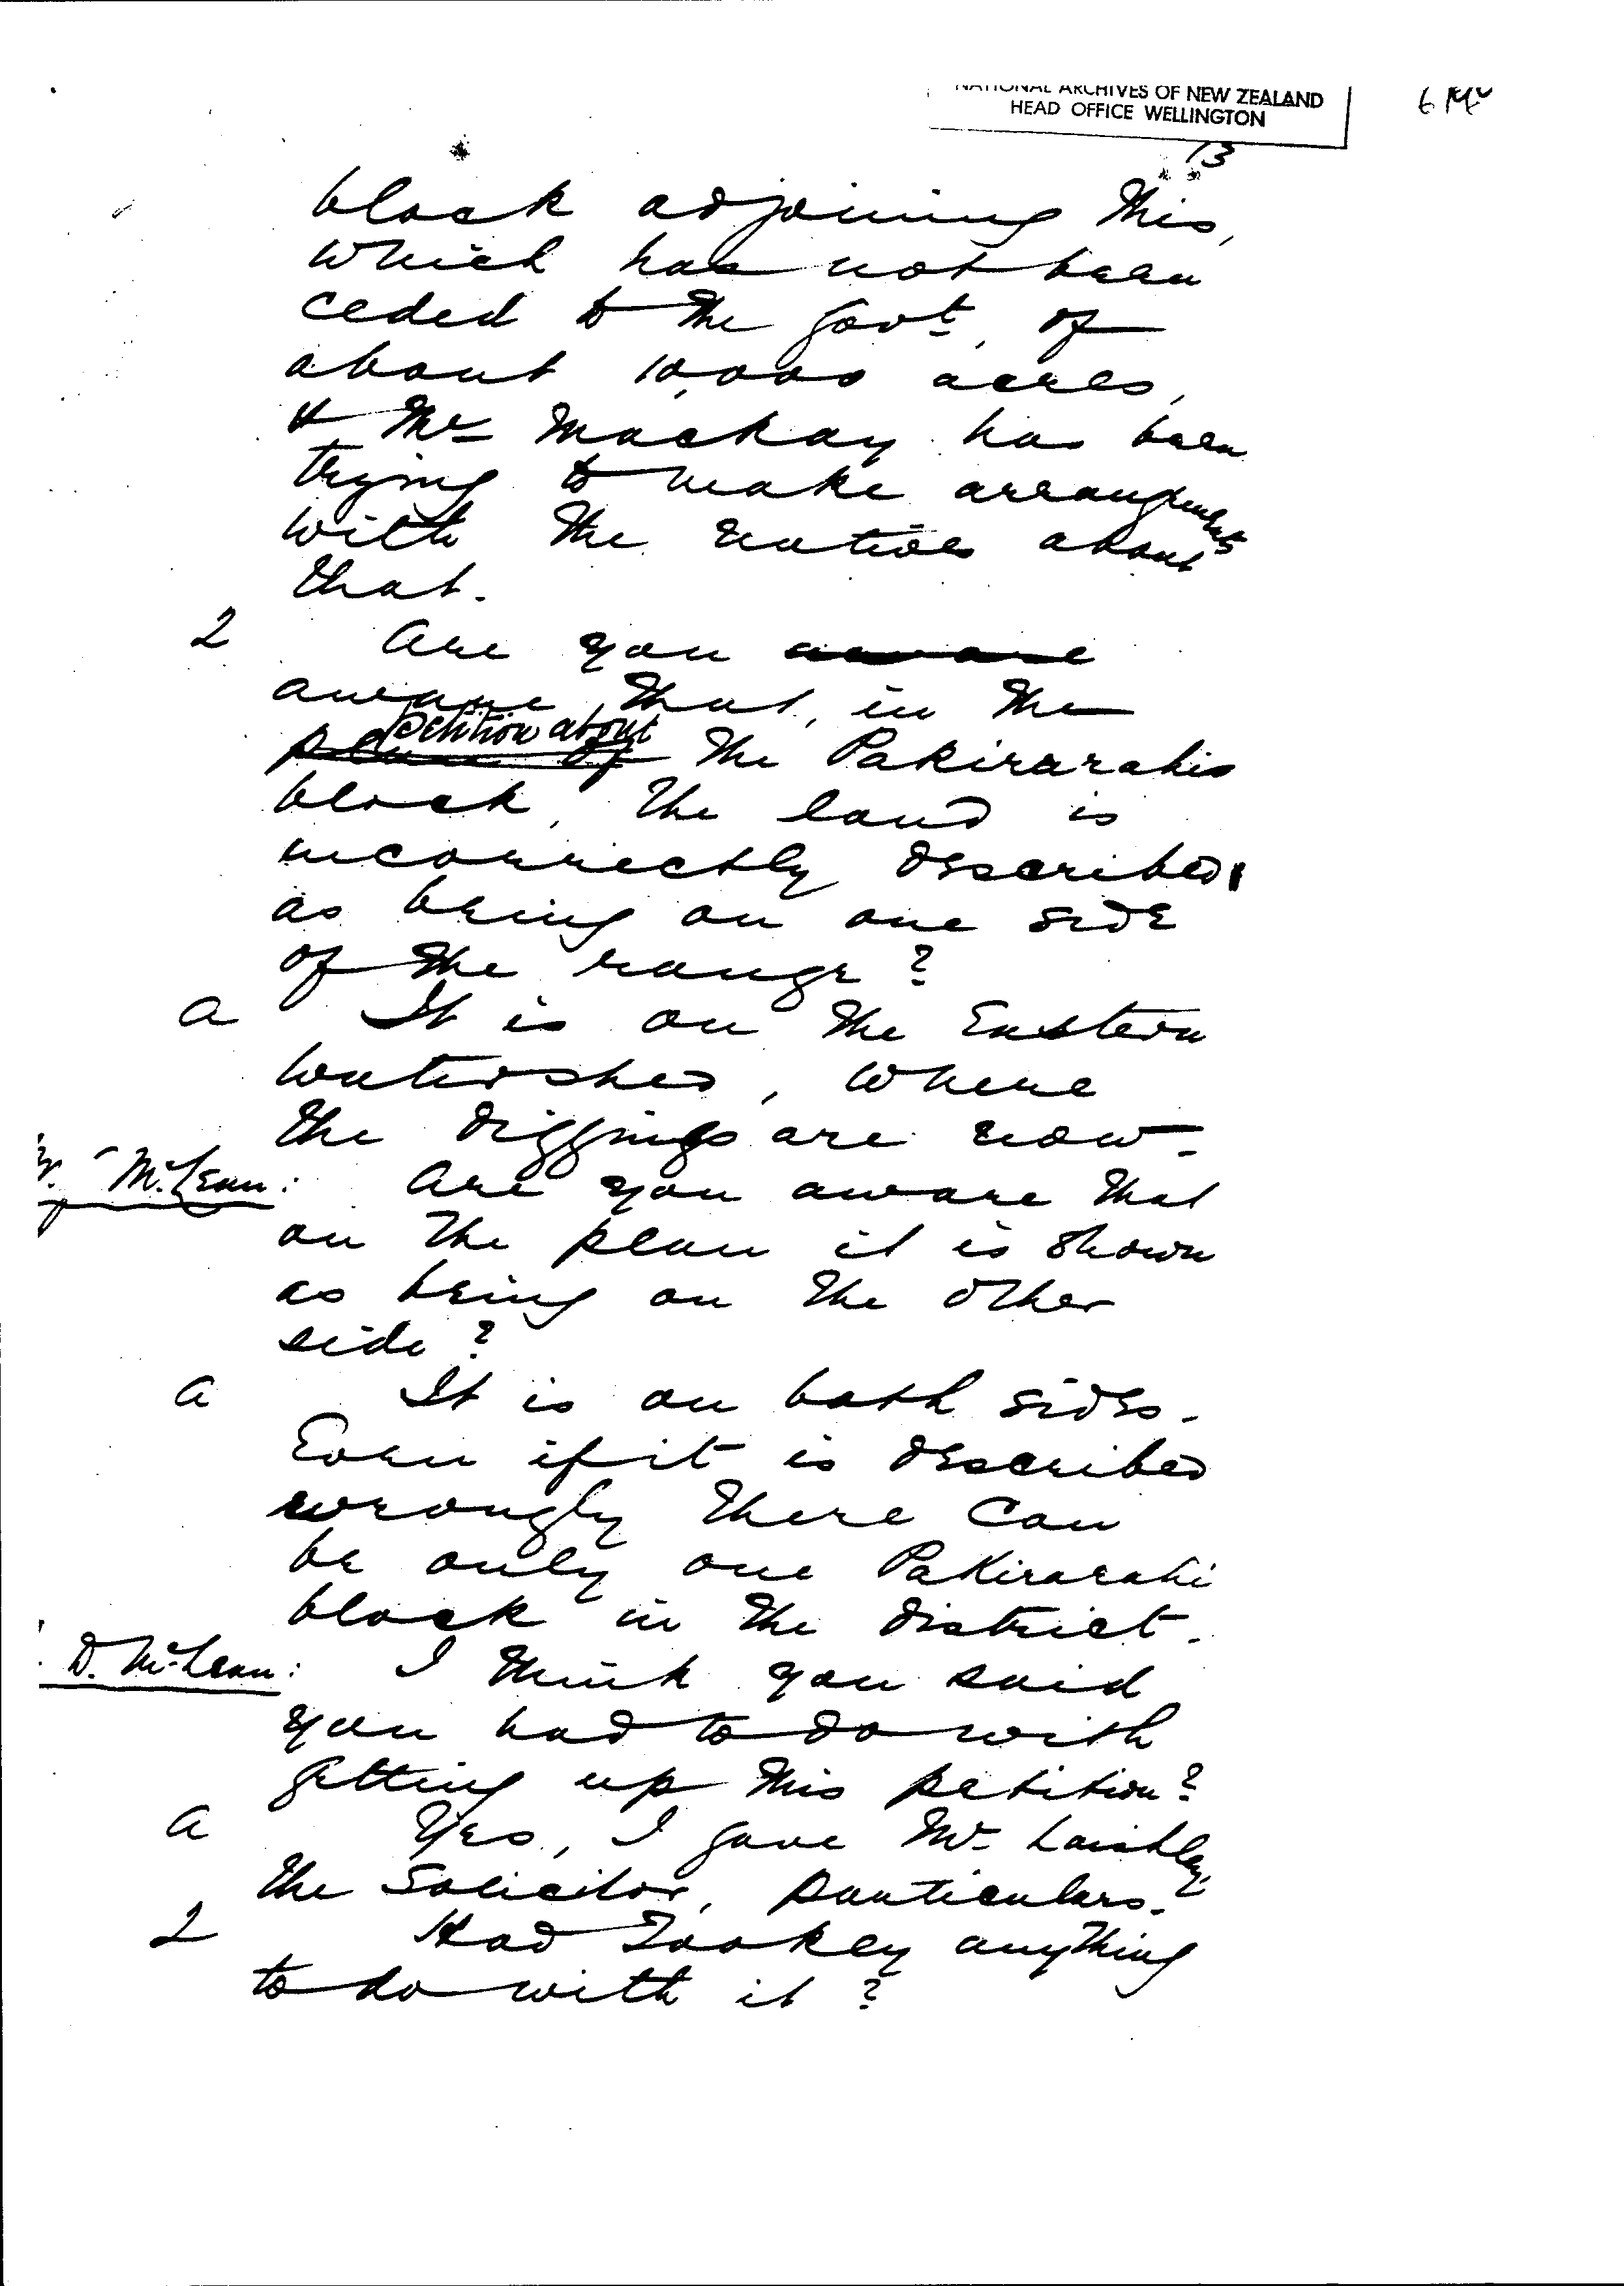 NATIONAL ARCHIVES OF NEW ZEALAND
HEAD OFFICE WELLINGTON
13
block adjoining this,
which has not been
ceded to the Govt, of
about 10,000 acres,
& Mr Mackay has been
trying to make arrangements
with the natives about
that.
Q Are you aware
aware that, in the
petition about
plan of the Pakirarahi
block, the land is
incorrectly described
as being on one side
of the range?
A It is on the Eastern
watershed, where
the diggings are now.
McLean: Are you aware that
on the plan it is shown
as being on the other
side?
A It is on both sides.
Even if it is described
wrongly there can
be only one Pakirarahi
block in the district.
D. McLean: I think you said
you had to do with
getting up this petition?
A Yes, I gave Mr Laishley,
the Solicitor, particulars.
Q Had Tookey anything
to do with it?